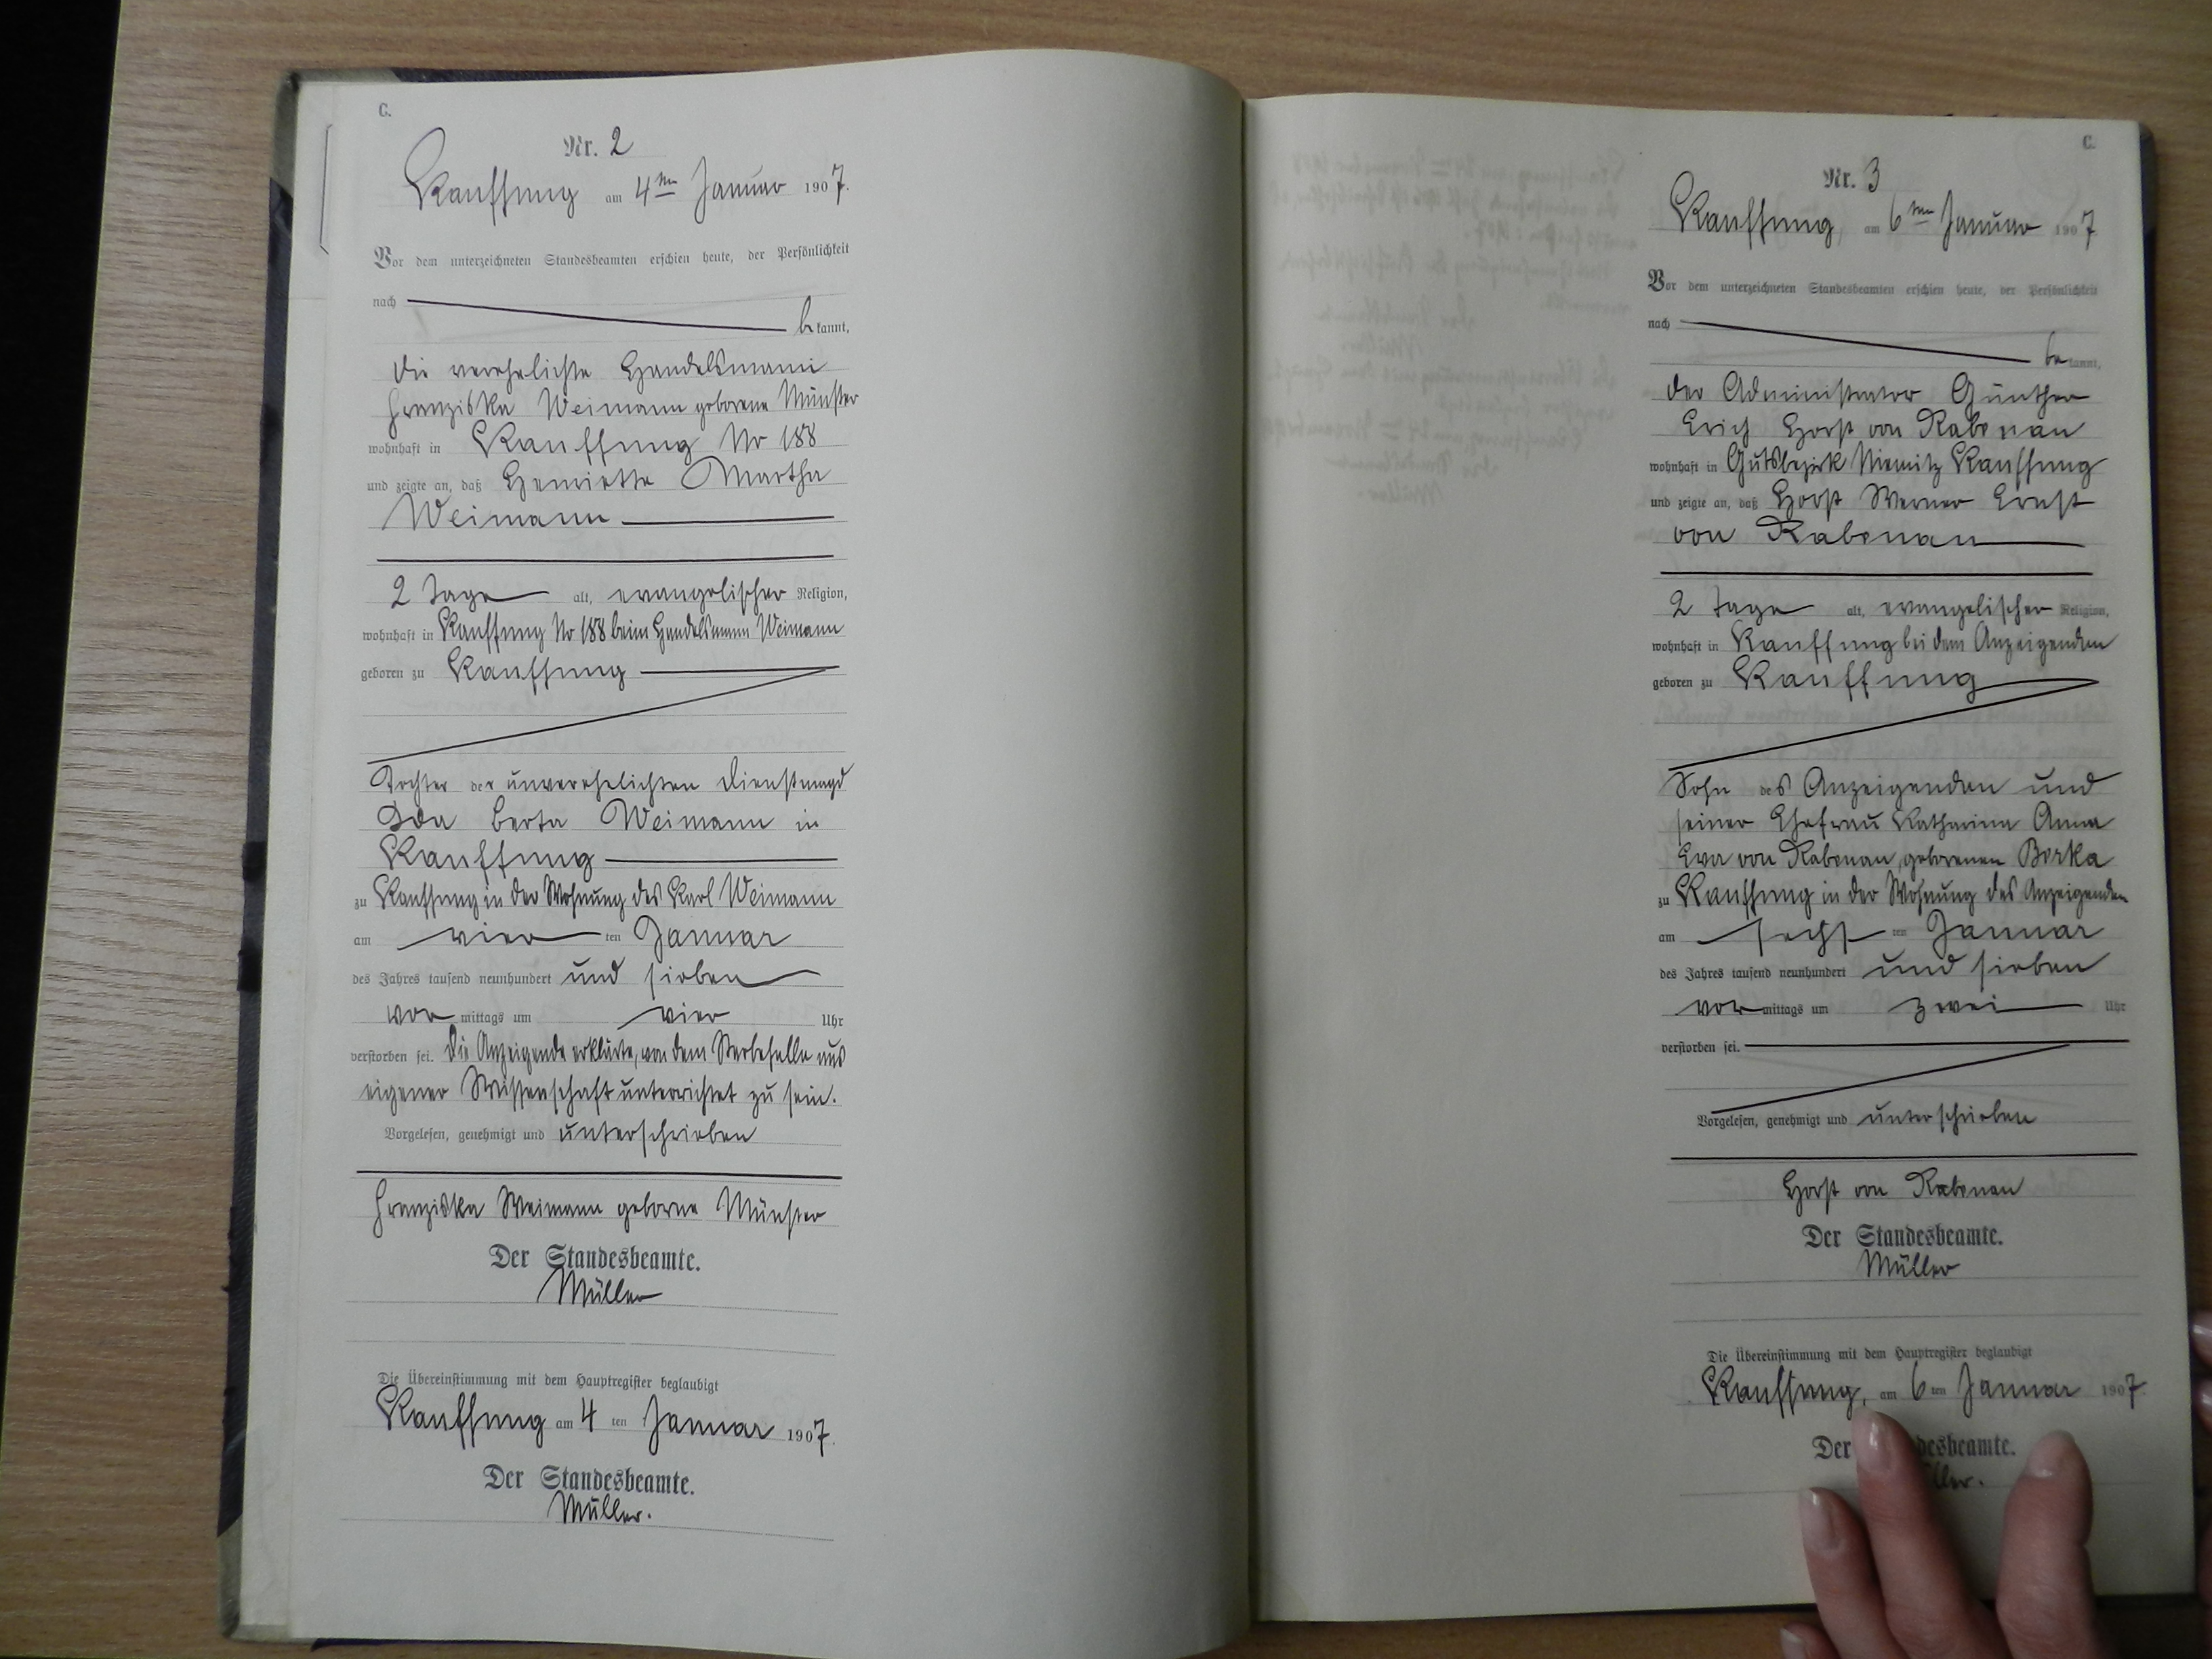 C.
Nr. 2
Kauffung am 4ten Januar 1907.
Vor dem unterzeichneten Standesbeamten erschien heute, der Persönlichkeit
nach
bekannt,
die verehelichte Handelsmann
Franziska Weimann geborene Münster
wohnhaft in Kauffung No 188
und zeigte an, daß Henriette Martha
Weimann
2 Tage alt, evangelischer Religion,
wohnhaft in Kauffung No 188 beim Handelsmann Weimann
geboren zu Kauffung
Tochter der unverehelichten Dienstmagd
Ida Berta Weimann in
Kauffung
zu Kauffung in der Wohnung des Karl Weimann
am vierten Januar
des Jahres tausend neunhundert und sieben
vormittags um vier Uhr
verstorben sei. Die Anzeigende erklärte, von dem Sterbefalle aus
eigener Wissenschaft unterrichtet zu sein.
Vorgelesen, genehmigt und unterschrieben
Franziska Weimann geborne Münster
Der Standesbeamte.
Müller
Die Übereinstimmung mit dem Hauptregister beglaubigt
Kauffung am 4 ten Januar 1907.
Der Standesbeamte.
Müller.
C.
Nr. 3
Kauffung, am 6ten Januar 1907
Vor dem unterzeichneten Standesbeamten erschien heute, der Persönlichkeit
nach
bekannt,
der Administrator Günther
Erich Horst von Rabenau
wohnhaft in Gutsbezirk Niemitz Kauffung
und zeigte an, daß Horst Werner Ernst
von Rabenau
2 Tage alt, evangelischer Religion,
wohnhaft in Kauffung bei dem Anzeigenden
geboren zu Kauffung
Sohn des Anzeigenden und
seiner Ehefrau Katharina Anna
Eva von Rabenau, geborenen Borka
zu Kauffung in der Wohnung des Anzeigenden
am sechsten Januar
des Jahres tausend neunhundert und sieben
vormittags um zwei Uhr
verstorben sei.
Vorgelesen, genehmigt und unterschrieben
Horst von Rabenau
Der Standesbeamte.
Müller
Die Übereinstimmung mit dem Hauptregister beglaubigt
Kauffung, am 6 ten Januar 1907.
Der desbeamte.
ller.